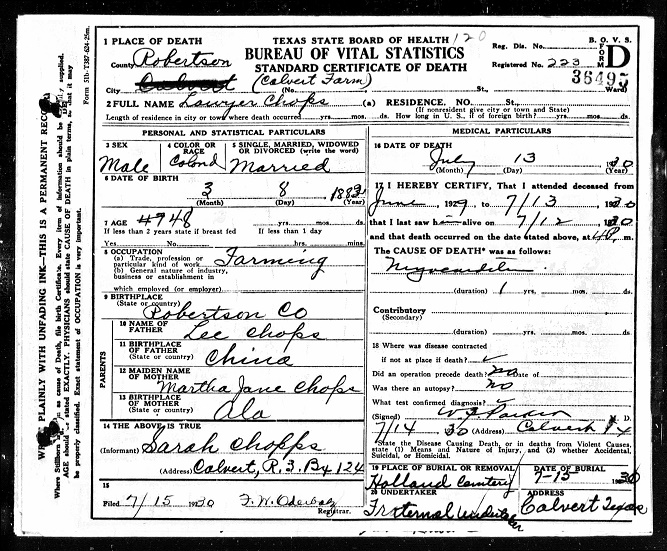 1 PLACE OF DEATH
TEXAS STATE BOARD OF HEALTH 120
B. O. V. S.
FORM D
County Robertson
BUREAU OF VITAL STATISTICS
Reg. Dis. No.
STANDARD CERTIFICATE OF DEATH
Registered No. 223
36495
City Calvert (Calvert Farm) (No. St., Ward)
2 FULL NAME Lawyer Chops (a) RESIDENCE. NO. St.,
(If nonresident give city or town and State)
Length of residence in city or town where death occurred yrs. mos. ds. How long in U. S., if of foreign birth? yrs. mos. ds.
PERSONAL AND STATISTICAL PARTICULARS
3 SEX
Male
4 COLOR OR RACE
Colond
5 SINGLE, MARRIED, WIDOWED OR DIVORCED (write the word)
Married
6 DATE OF BIRTH
3 8 1882
(Month) (Day) (Year)
7 AGE 48 yrs. mos. ds.
If less than 2 years state if breast fed If less than 1 day
Yes No hrs. mins.
8 OCCUPATION
(a) Trade, profession or particular kind of work Farming
(b) General nature of industry, business or establishment in
which employed (or employer)
9 BIRTHPLACE
(State or country) Robertson Co
PARENTS
10 NAME OF FATHER Lee Chops
11 BIRTHPLACE OF FATHER
(State or country) China
12 MAIDEN NAME OF MOTHER Martha Jane Chops
13 BIRTHPLACE OF MOTHER
(State or country) Ala
14 THE ABOVE IS TRUE
(Informant) Sarah Chopps
(Address) Calvert, R. 3. Bx 124
15
Filed 7/15 1930 F. W. Registrar.
MEDICAL PARTICULARS
16 DATE OF DEATH
July 13 1930
(Month) (Day) (Year)
17 I HEREBY CERTIFY, That I attended deceased from
June, 1929, to 7/13, 1930
that I last saw h alive on 7/12 1930
and that death occurred on the date stated above, at m.
The CAUSE OF DEATH* was as follows:
(duration) 1 yrs. mos. ds.
Contributory
(Secondary)
(duration) yrs. mos. ds.
18 Where was disease contracted
if not at place if death?
Did an operation precede death? No Date of
Was there an autopsy? No
What test confirmed diagnosis?
(Signed) M. D.
7/14 30 (Address) Calvert Tx
*State the Disease Causing Death, or in deaths from Violent Causes, state (1) Means and Nature of Injury, and (2) whether Accidental, Suicidal, or Homicidal.
19 PLACE OF BURIAL OR REMOVAL
Holland Cemetery
DATE OF BURIAL
7-15 1930
20 UNDERTAKER
Fraternal Undertaker
ADDRESS
Calvert Texas
Form 51D-T387-624-25m.
PLAINLY WITH UNFADING INK—THIS IS A PERMANENT